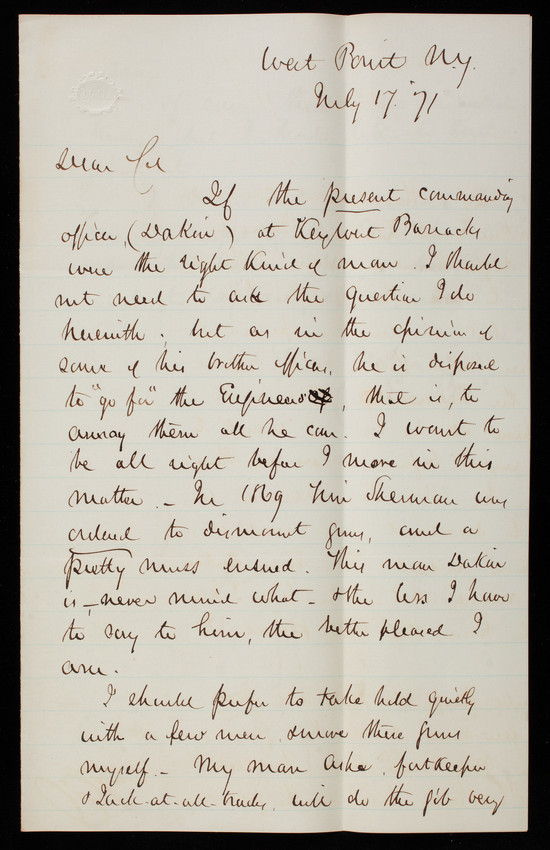 West Point N.Y.
July 17. '71
Dear Col
If the present commanding
officer, (Dakin) at Key West Barracks
were the right kind of man. I should
not need to ask the question I do
herewith; but as in the opinion of
some of his brother officers, he is disposed
to "go for" the Engineers, that is, to
annoy them all he can. I want to
be all right before I move in this
matter. - In 1869 Tim Sherman was
ordered to dismount guns, and a
pretty muss ensued. This man Dakin
is - never mind what - & the less I have
to say to him, the better pleased I
am.
I should prefer to take hold quietly
with a few men & move these guns
myself. - My man Aske, fortkeeper
& Jack-at-all-trades, will do the job very